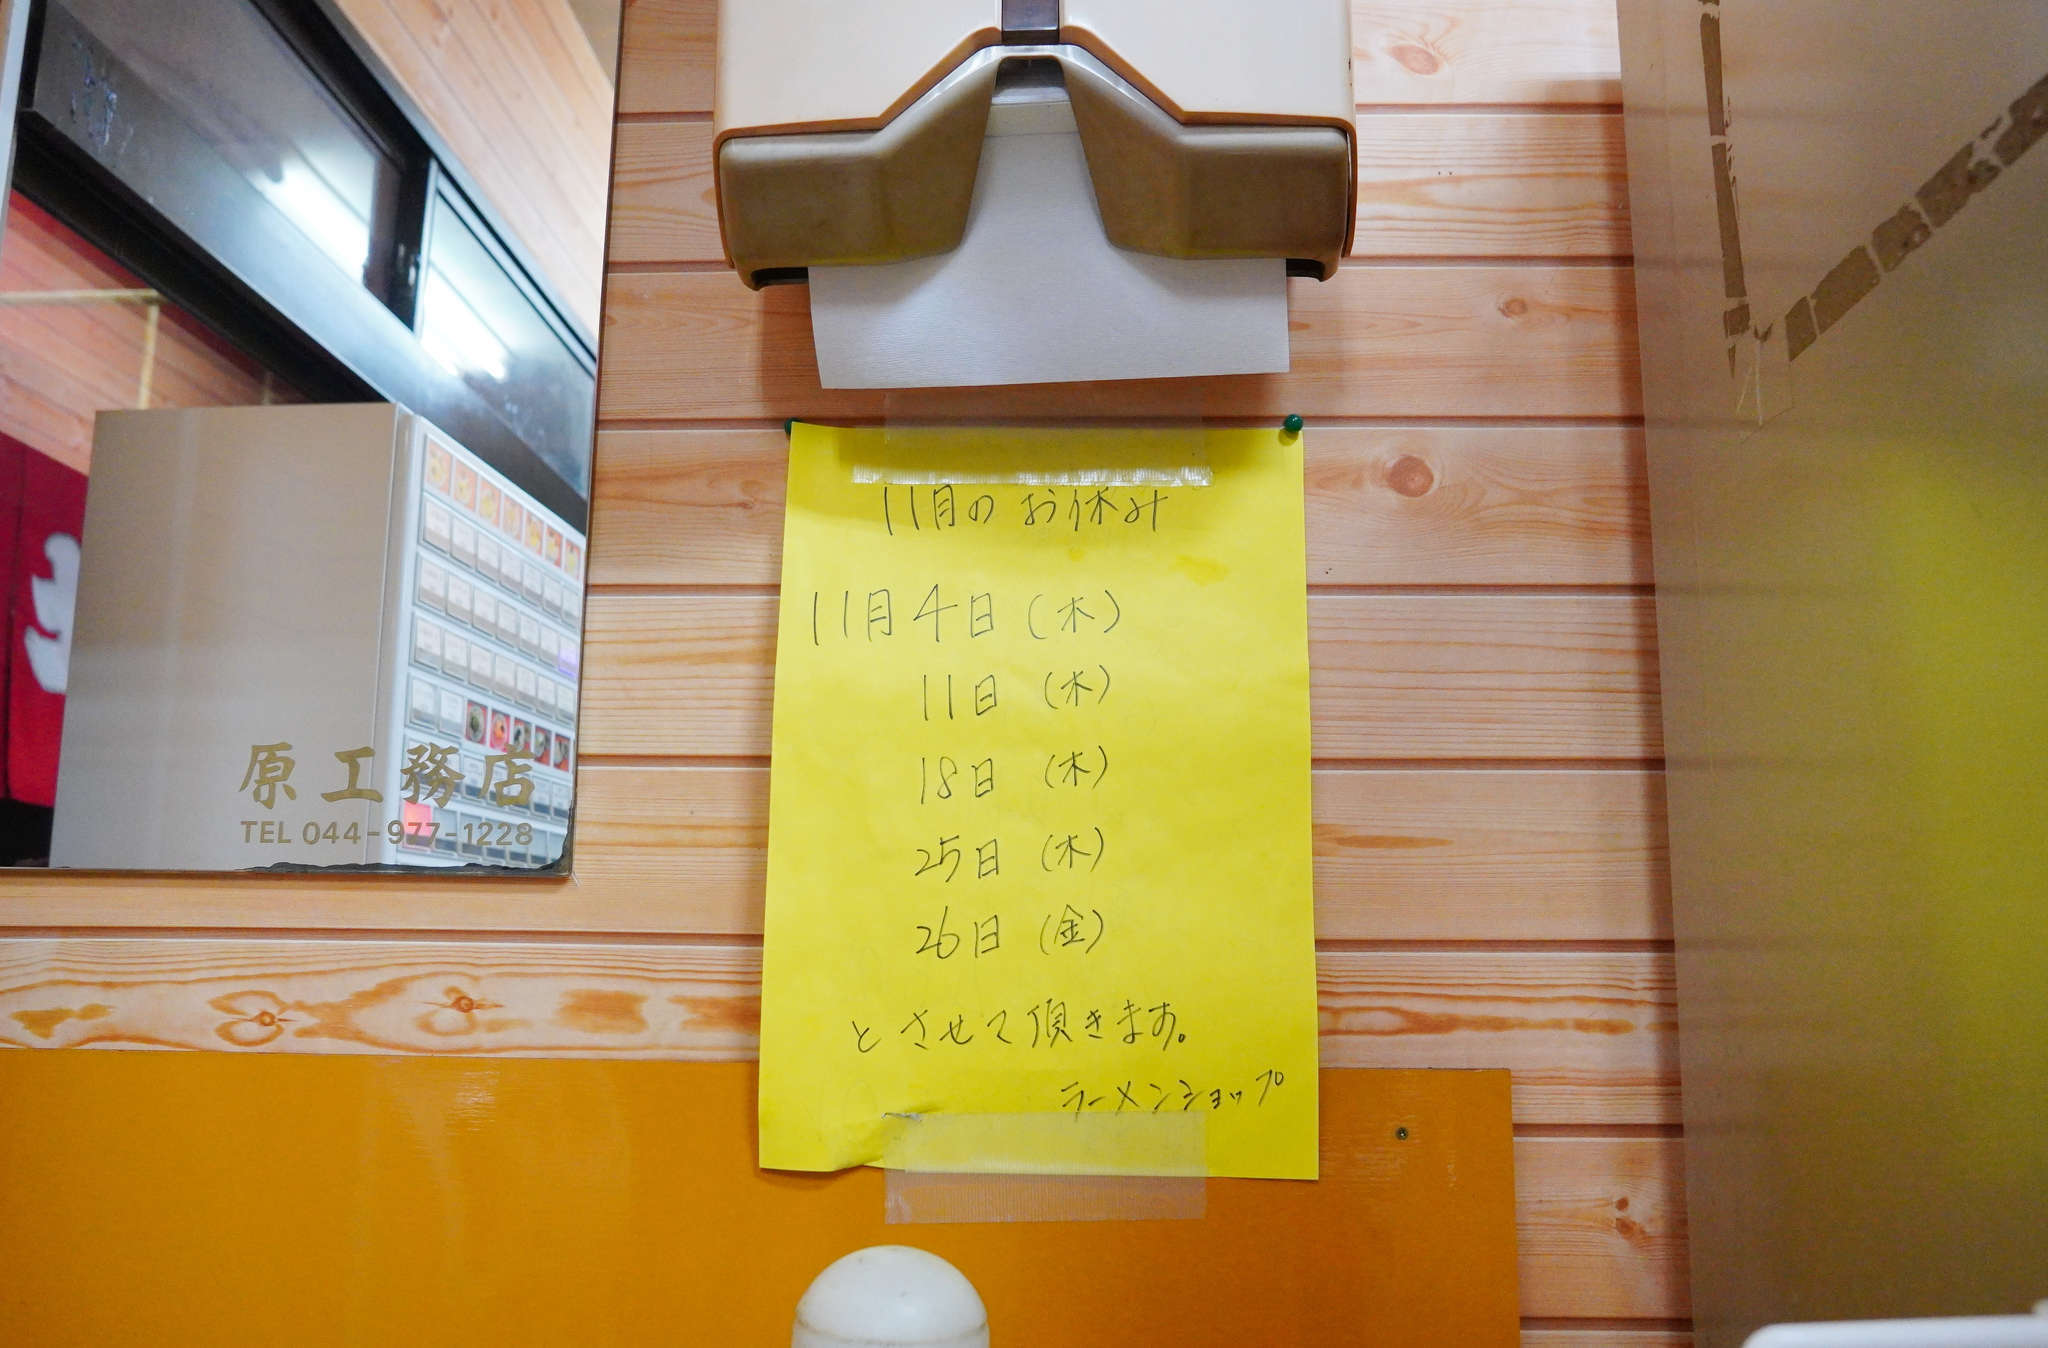 11月のお休み
11月4日(木)
11日(木)
18日(木)
25日(木)
26日(金)
とさせて頂きます。
ラーメンショップ
原工務店
TEL 044-977-1228